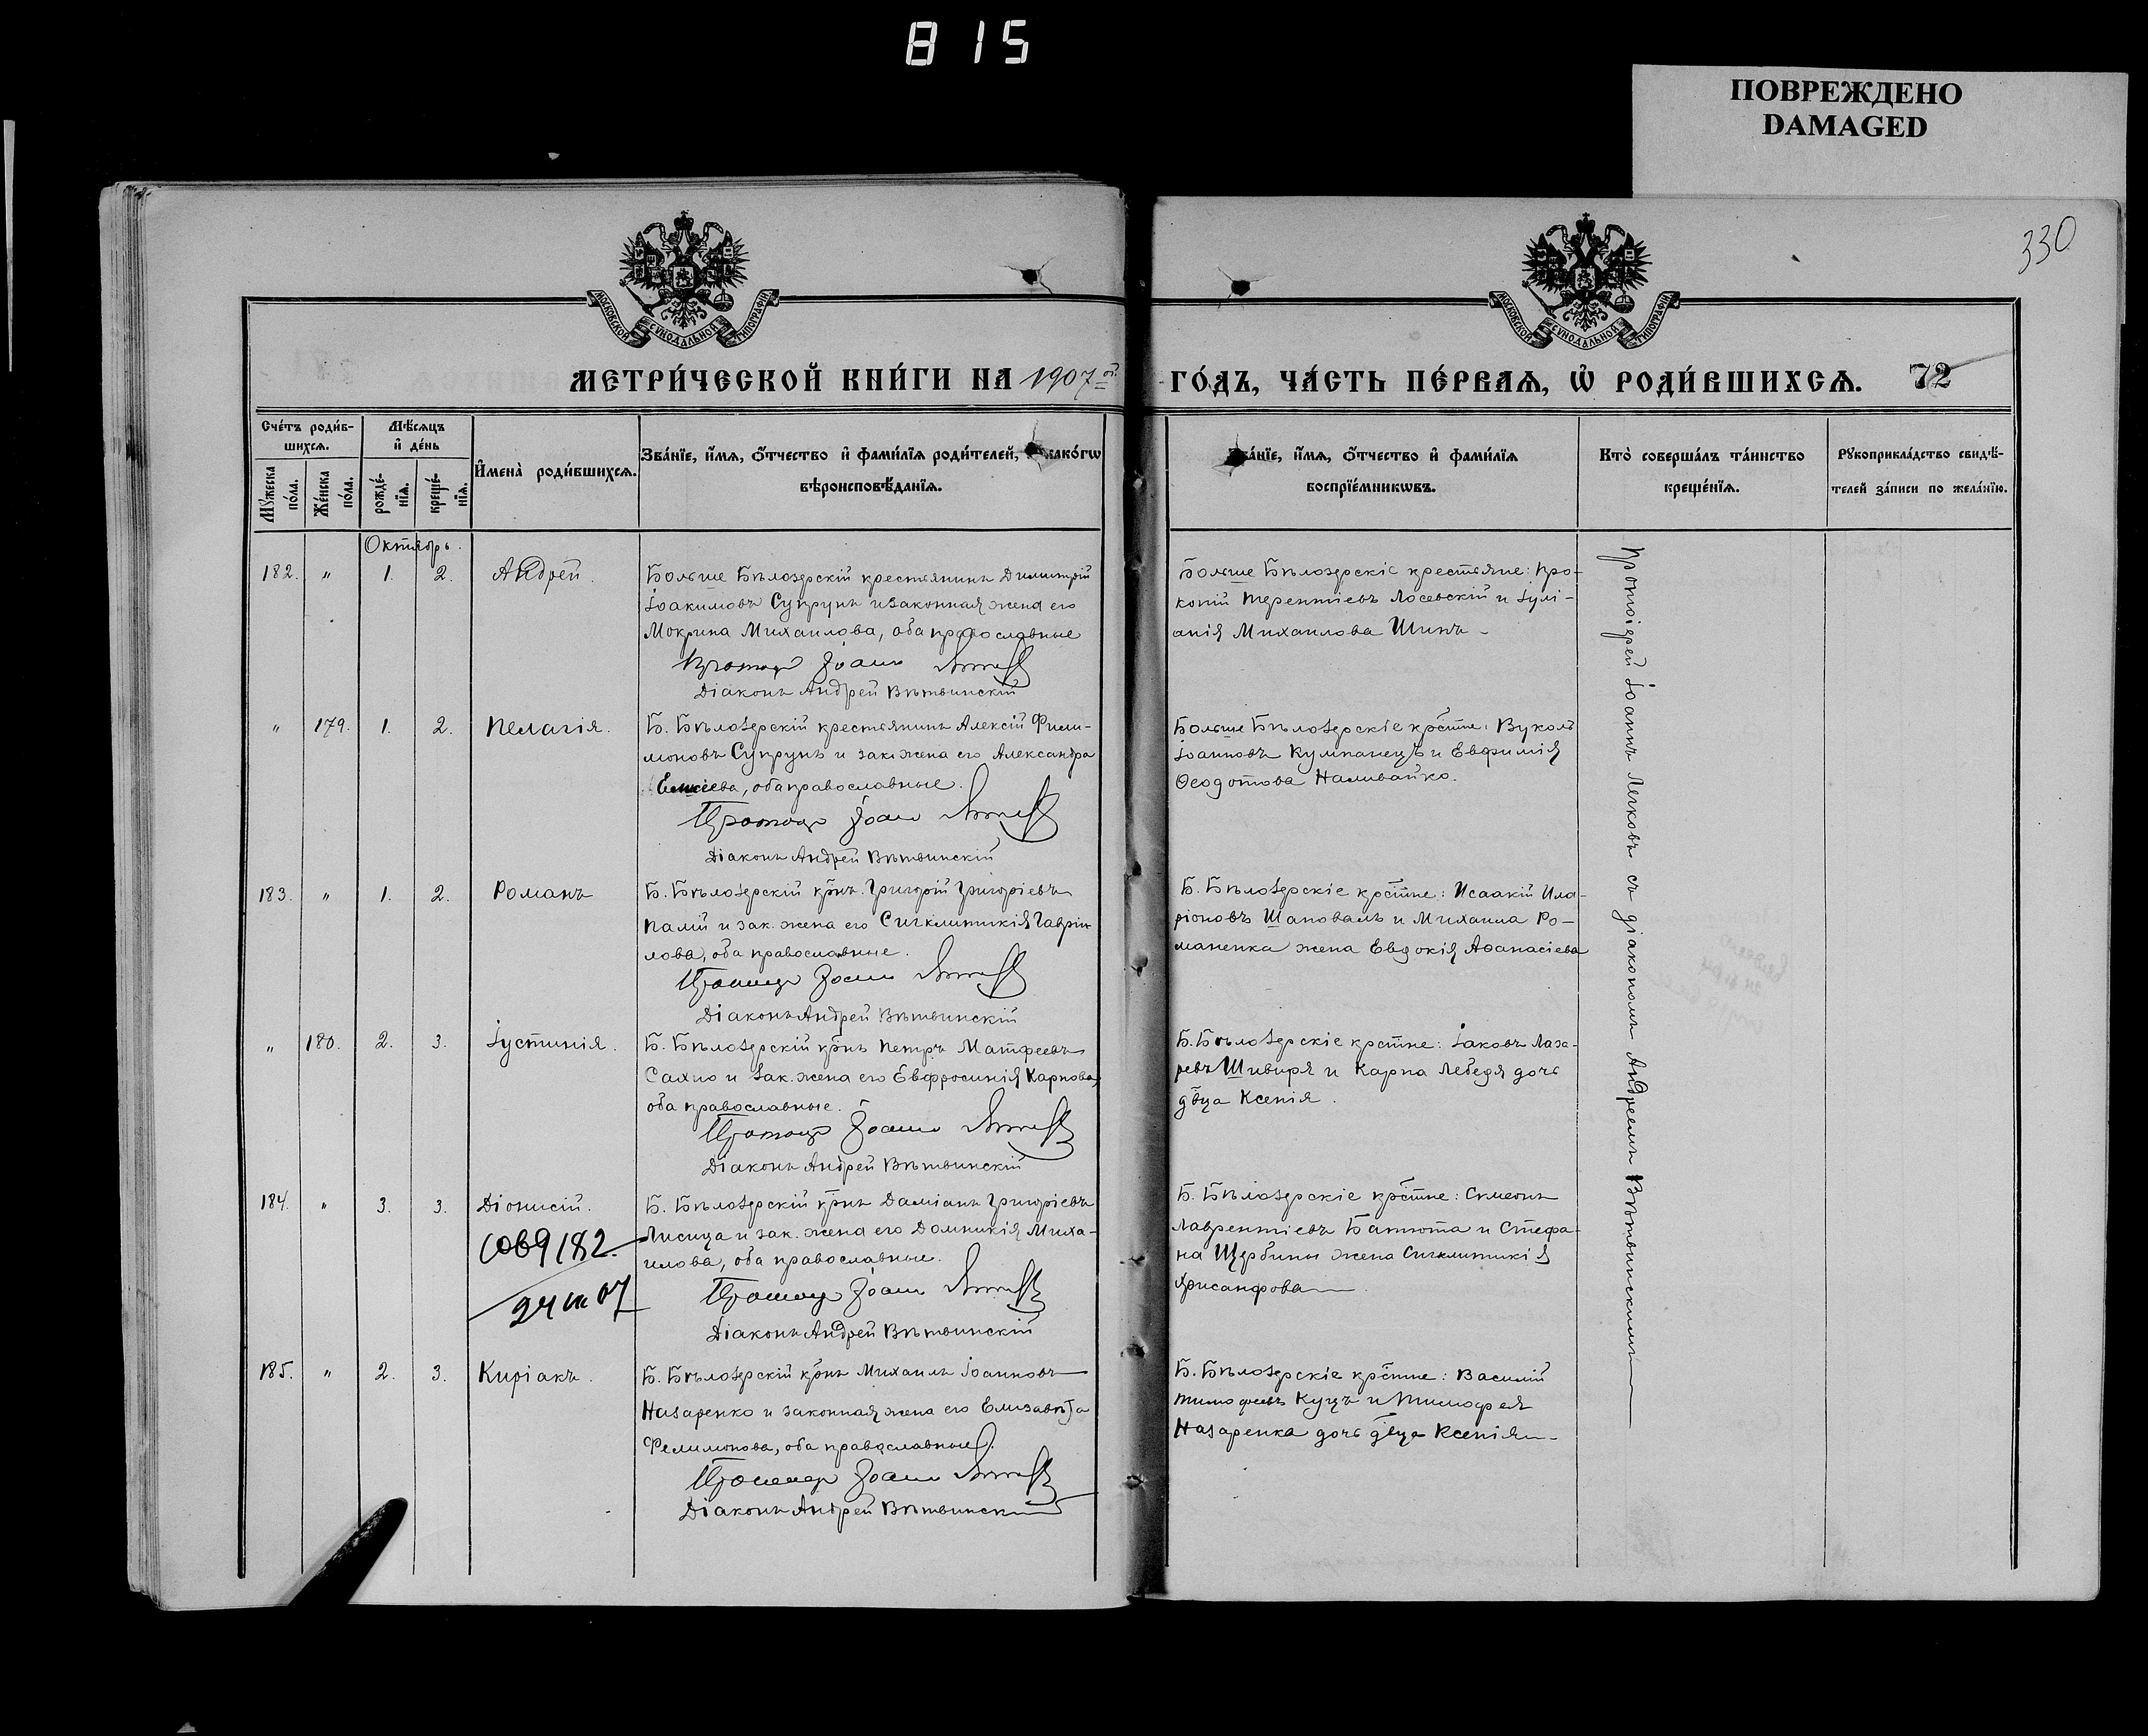 815
ПОВРЕЖДЕНО
DAMAGED
330
МОСКОВСКОЙ СѴНОДАЛЬНОЙ ТИПОГРАФІИ
МОСКОВСКОЙ СѴНОДАЛЬНОЙ ТИПОГРАФІИ
МЕТРИ́ЧЕСКОЙ КНИ́ГИ НА 1907 ой ГО́ДЪ, ЧА́СТЬ ПЕ́РВАѦ, Ѡ҆ РОДИ́ВШИХСѦ. 72
Сче́тъ роди́в-
шихсѧ.
Мꙋ́жеска по́ла.
Же́нска по́ла.
Мѣ́сѧцъ
и҆ де́нь
рожде́-нїѧ.
креще́-нїѧ.
И҆мена̀ роди́вшихсѧ.
Зва́нїе, и҆́мѧ, ѻ҆́тчество и҆ фами́лїѧ роди́телей, како́гѡ
вѣроисповѣ́данїѧ.
ва́нїе, и҆́мѧ, ѻ҆́тчество и҆ фами́лїѧ
воспрїе́мникѡвъ.
Кто̀ соверша́лъ та́инство
креще́нїѧ.
Рꙋкоприкла́дство свидѣ́-
телей за́писи по жела́нїю.
Октябрь.
182. " 1. 2. Андрей.
Больше Бѣлозерскій крестьянинъ Димитрій
Іоакимовъ Супрунъ и законная жена его
Мокрина Михаилова, оба православные
Іоаннъ
Діаконъ Андрей Вѣтвинскій
Больше Бѣлозерскіе крестьяне: Про-
копій Терентіевъ Лосевскій и Іулі-
анія Михаилова Шинъ
" 179. 1. 2. Пелагія.
Б. Бѣлозерскій крестьянинъ Алексій Фили-
моновъ Супрунъ и зак. жена его Александра
Елисеева, оба православные.
Іоаннъ
Діаконъ Андрей Вѣтвинскій
Больше Бѣлозерскіе крстне: Вуколъ
Іоанновъ Кумпанецъ и Евфимія
Ѳеодотова Наливайко.
183. " 1. 2. Романъ
Б. Бѣлозерскій крнъ. Григорій Григоріевъ
Палій и зак. жена его Сигклитикія Гаврiи-
лова, оба православные.
Іоаннъ
Діаконъ Андрей Вѣтвинскій
Б. Бѣлозерскіе крстне: Исаакій Ила-
ріоновъ Шаповалъ и Михаила Ро-
маненка жена Евдокія Аѳанасіева
" 180. 2. 3. Іустинія.
Б. Бѣлозерскій крнъ Петръ Матфеевъ
Сахно и зак. жена его Евфросинія Карпова,
оба православные.
Іоаннъ
Діаконъ Андрей Вѣтвинскій
Б. Бѣлозерскіе крстне: Іаковъ Лаза-
ревъ Шивиря и Карпа Лебедя дочь
двца Ксенія.
184. " 3. 3. Діонисій.
Б. Бѣлозерскій крнъ Даміанъ Григоріевъ
Лисица и зак. жена его Домникія Миха-
илова, оба православные.
Іоаннъ
Діаконъ Андрей Вѣтвинскій
Б. Бѣлозерскіе крстне: Симеонъ
Лаврентіевъ Батюта и Стефа-
на Щербины жена Сигклитикія
Хрисанфова
185. " 2. 3. Киріакъ.
Б. Бѣлозерскій крнъ Михаилъ Іоанновъ
Назаренко и законная жена его Елизавѣта
Филимонова, оба православные.
Іоаннъ
Діаконъ Андрей Вѣтвинскій
Б. Бѣлозерскіе крстне: Василій
Тимофеевъ Куцъ и Тимофея
Назаренка дочь двца Ксенія
Протоіерей Іоаннъ Легковъ съ діакономъ Андреемъ Вѣтвинскимъ